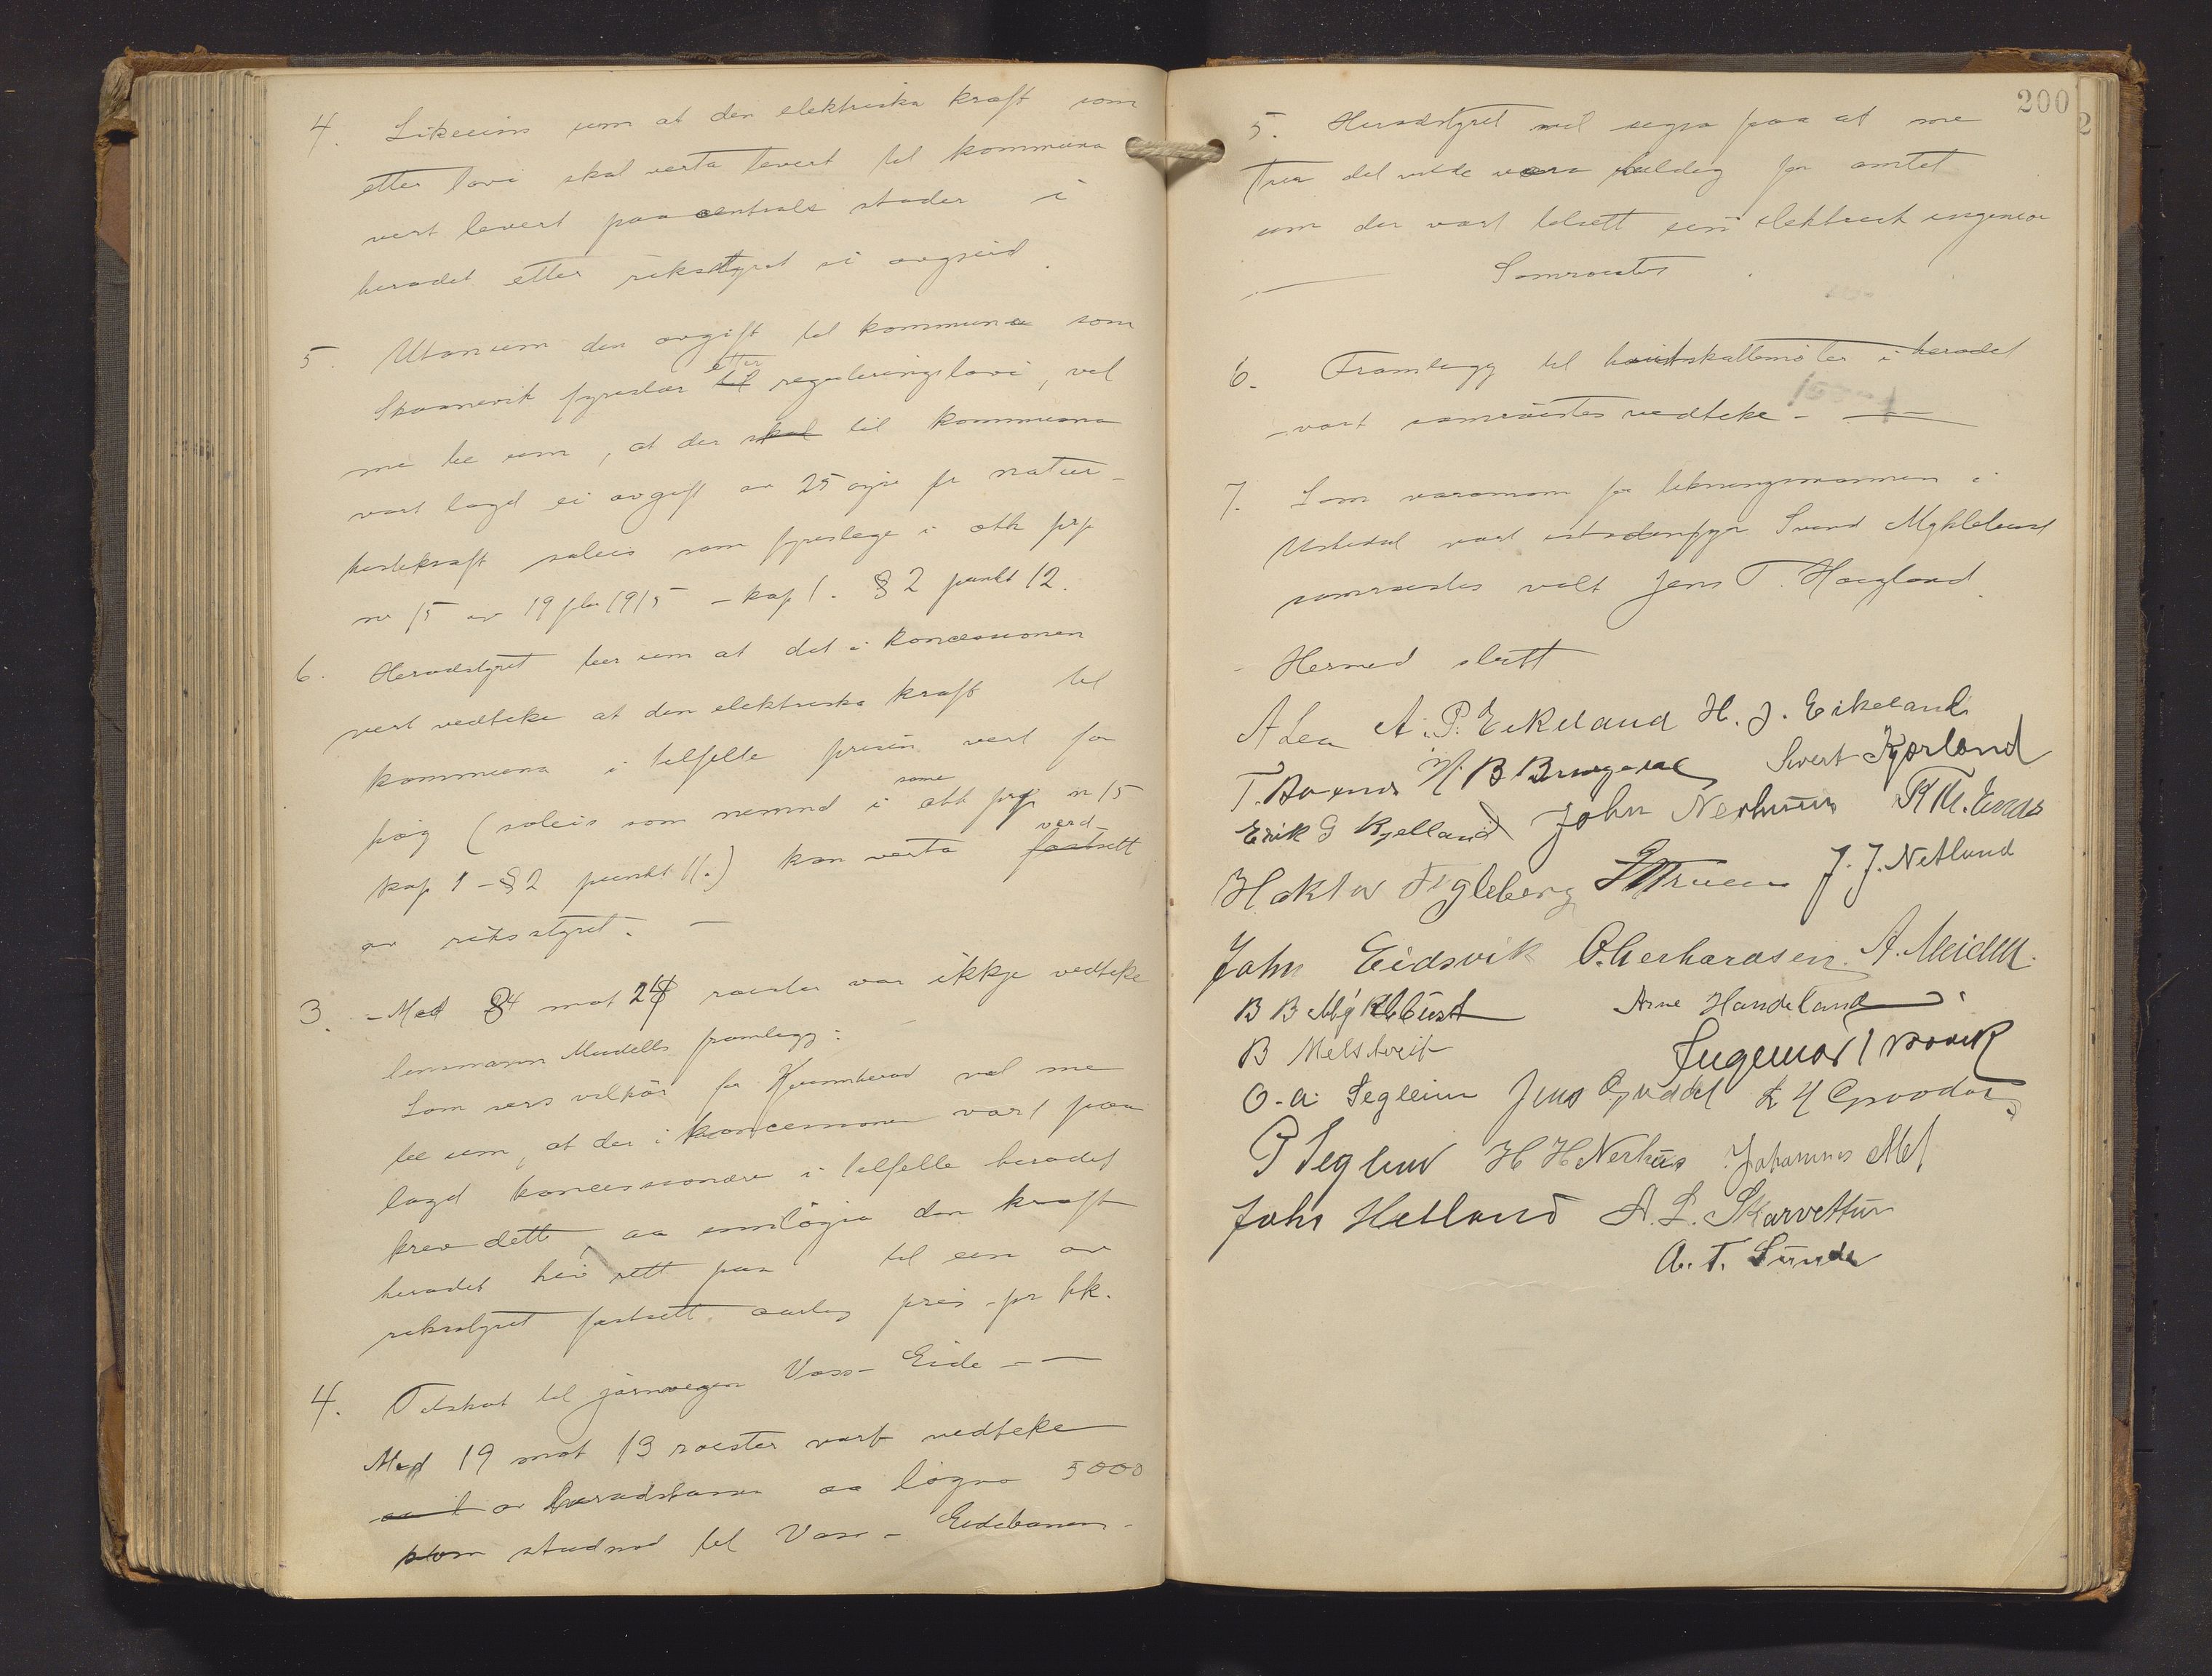 4. Likeeins um at den elektriska kraft som
etter lovi skal verta levert til kommuna
vert levert paa centrale stader i
heradet etter riksstyret si avgjerd.
5. Utanum den avgift til kommuna som
Skaanevik fyreslær etter reguleringslovi, vil
me be um, at der skal til kommuna
vart lagd ei avgift av 25 øyre pr natur-
hestekraft soleis som fyreslege i oth prp
nr 15 av 19 fbr 1915 - kap 1. § 2 punkt 12.
6. Heradstyret ber um at det i koncessionen
vert vedteke at den elektriska kraft til
kommuna i tilfelle prisen vert for
høg (soleis som nemnd i same oth prp nr 15
kap 1 - § 2 punkt 11.) kan verta verd fastsett
av riksstyret. -
3. - Med 84 mot 24 røister var ikkje vedteke
lensmann Meidells framlegg:
Som sers vilkår for Kvinnherad vil me
be um, at der i koncessionen vart paa
lagd koncessionæren i tilfelle heradet
krev dette aa innløysa den kraft
heradet hev rett paa til ein av
riksstyret fastsett aarleg pris pr hk.
4. Tilskot til jarnvegen Voss - Eide - -
Med 19 mot 13 røister vart vedteke
av heradskassa aa løyva 5000
som studnad til Voss - Eidebanen -
200
2
5. Heradstyret vil segja paa at me
trur det vilde vera heldig for amtet
um der vart tilsett ein elektrisk ingeniør
Samrøistes.
6. Framlegg til hundskattemøter i heradet
- vart samrøistes vedteke - -
7. Som varamann for likningsmannen i
Uskedal vart istadenfyr Svend Myklebust
samrøistes valt Jens T. Haugland.
- Hermed slutt
A Lea A. P. Eikeland H. J. Eikeland
T. Bøxnes H. B. Sivert Kjærland
Erik G Kjelland John Nerhuus
Haktor Fegleberg J. J. Netlund
John Eidsvik O. Gerhardsen. A. Meidell.
B B Myklebust Arne Handeland
B Melstveit Ingemar
O. A. Segleim Jens Guddal
P Seglem H H Nerhus Johannes Mel
John Helland A. L. Skarvettun
A. T. Sunde